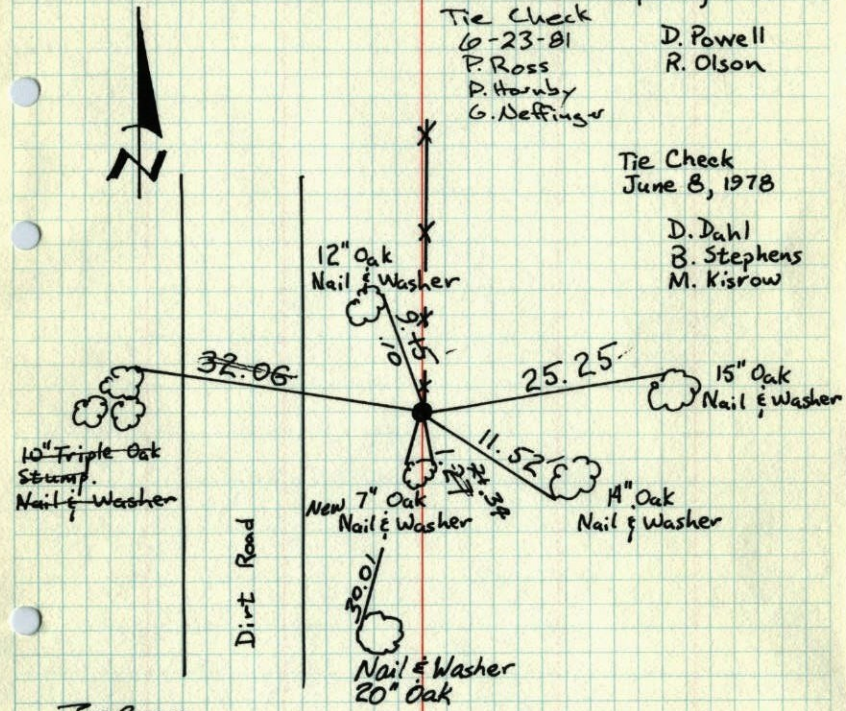 Tie Check
6-23-81
P. Ross
D. Hornby
G. Neffinger
D. Powell
R. Olson
Tie Check
June 8, 1978
D. Dahl
B. Stephens
M. Kisrow
N
12" Oak
Nail & Washer
32.06
25.25
15" Oak
Nail & Washer
11.52'
10" Triple Oak
Stump.
Nail & Washer
New 7" Oak
Nail & Washer
14" Oak
Nail & Washer
Dirt Road
30.01
Nail & Washer
20" Oak